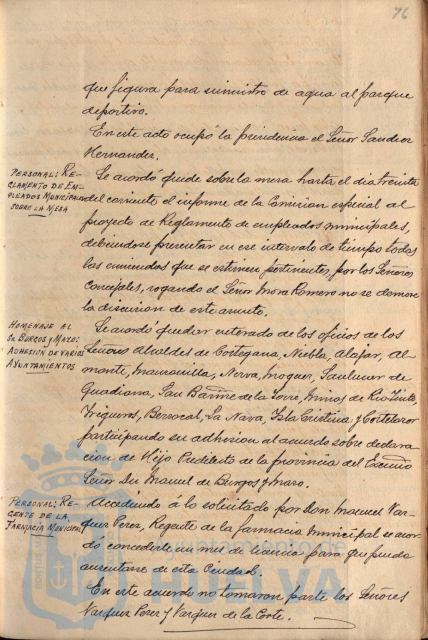 76
que figura para suministro de agua al parque
deportivo.
En este acto ocupó la presidencia el Señor Sanchez
Hernandez.
PERSONAL: RE-
GLAMENTO DE EM-
PLEADOS MUNICIPALES
SOBRE LA MESA
Se acordó quede sobre la mesa hasta el dia treinta
del corriente el informe de la Comision especial al
proyecto de Reglamento de empleados municipales,
debiendose presentar en ese intervalo de tiempo todas
las enmiendas que se estimen pertinentes, por los Señores
Concejales, rogando el Señor Mora Romero no se demore
la discusion de este asunto.
HOMENAJE AL
Sr BURGOS Y MAZO:
ADHESION DE VARIOS
AYUNTAMIENTOS
Se acordó quedar enterado de los oficios de los
Señores Alcaldes de Cortegana, Niebla, Alajar, Al-
monte, Manzanilla, Nerva, Moguer, Sanlucar de
Guadiana, San Bartmé de la Torre, Minas de Riotinto,
Trigueros, Berrocal, La Nava, Isla Cristina y Cortelazor
participando su adhesion al acuerdo sobre declara-
cion de Hijo Predilecto de la provincia del Excmo
Señor Dn Manuel de Burgos y Mazo.
PERSONAL: RE-
GENTE DE LA
FARMACIA MUNICIPAL
Accediendo á lo solicitado por Don Manuel Vaz-
quez Perez, Regente de la farmacia municipal se acor-
dó concederle un mes de licencia para que pueda
ausentarse de esta Ciudad.
En este acuerdo no tomaron parte los Señores
Vazquez Perez y Vazquez de la Corte.
HUELVA